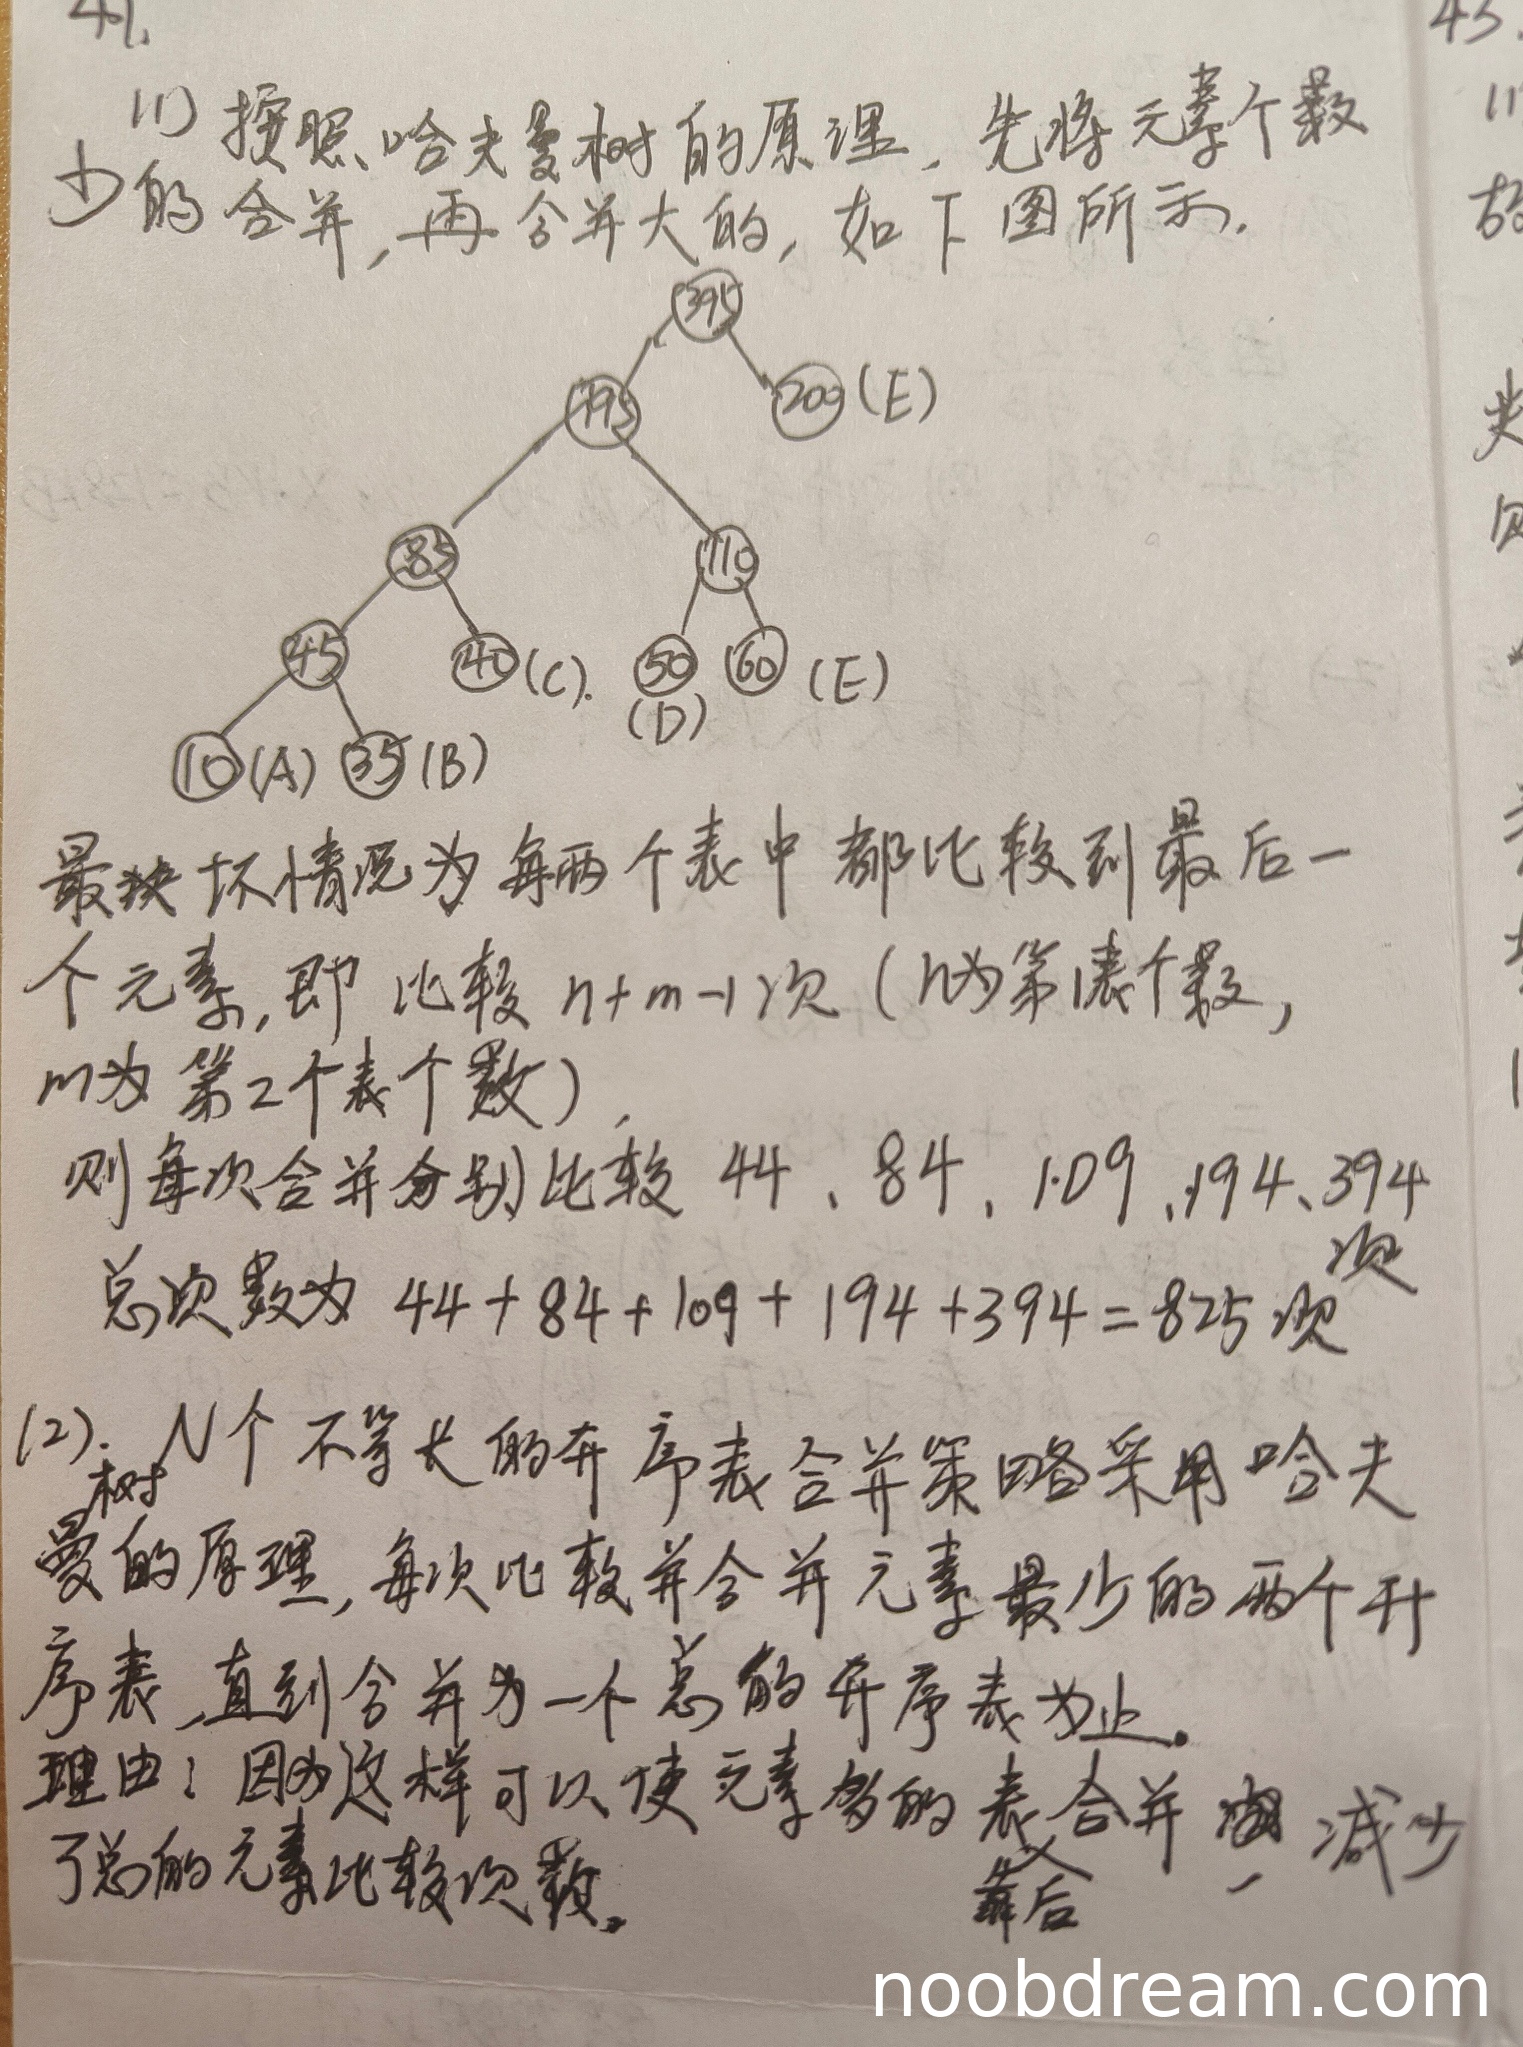 41.
(1) 按照哈夫曼树的原理，先将元素个数
少的合并，再合并大的，如下图所示.
395
195
200 (E)
85
110
45
40 (C).
50
60 (E)
(D)
10 (A)
35 (B)
最坏情况为每两个表中都比较到最后一
个元素，即比较 n+m-1次（n为第1表个数，
m为第2个表个数），
则每次合并分别比较 44、84、109、194、394
次
总次数为 44+84+109+194+394=825次
(2). N个不等长的升序表合并策略采用哈夫
树
曼的原理，每次比较并合并元素最少的两个升
序表，直到合并为一个总的升序表为止。
理由：因为这样可以使元素多的表合并，减少
靠后
了总的元素比较次数。
43.
(1)
故
noobdream.com